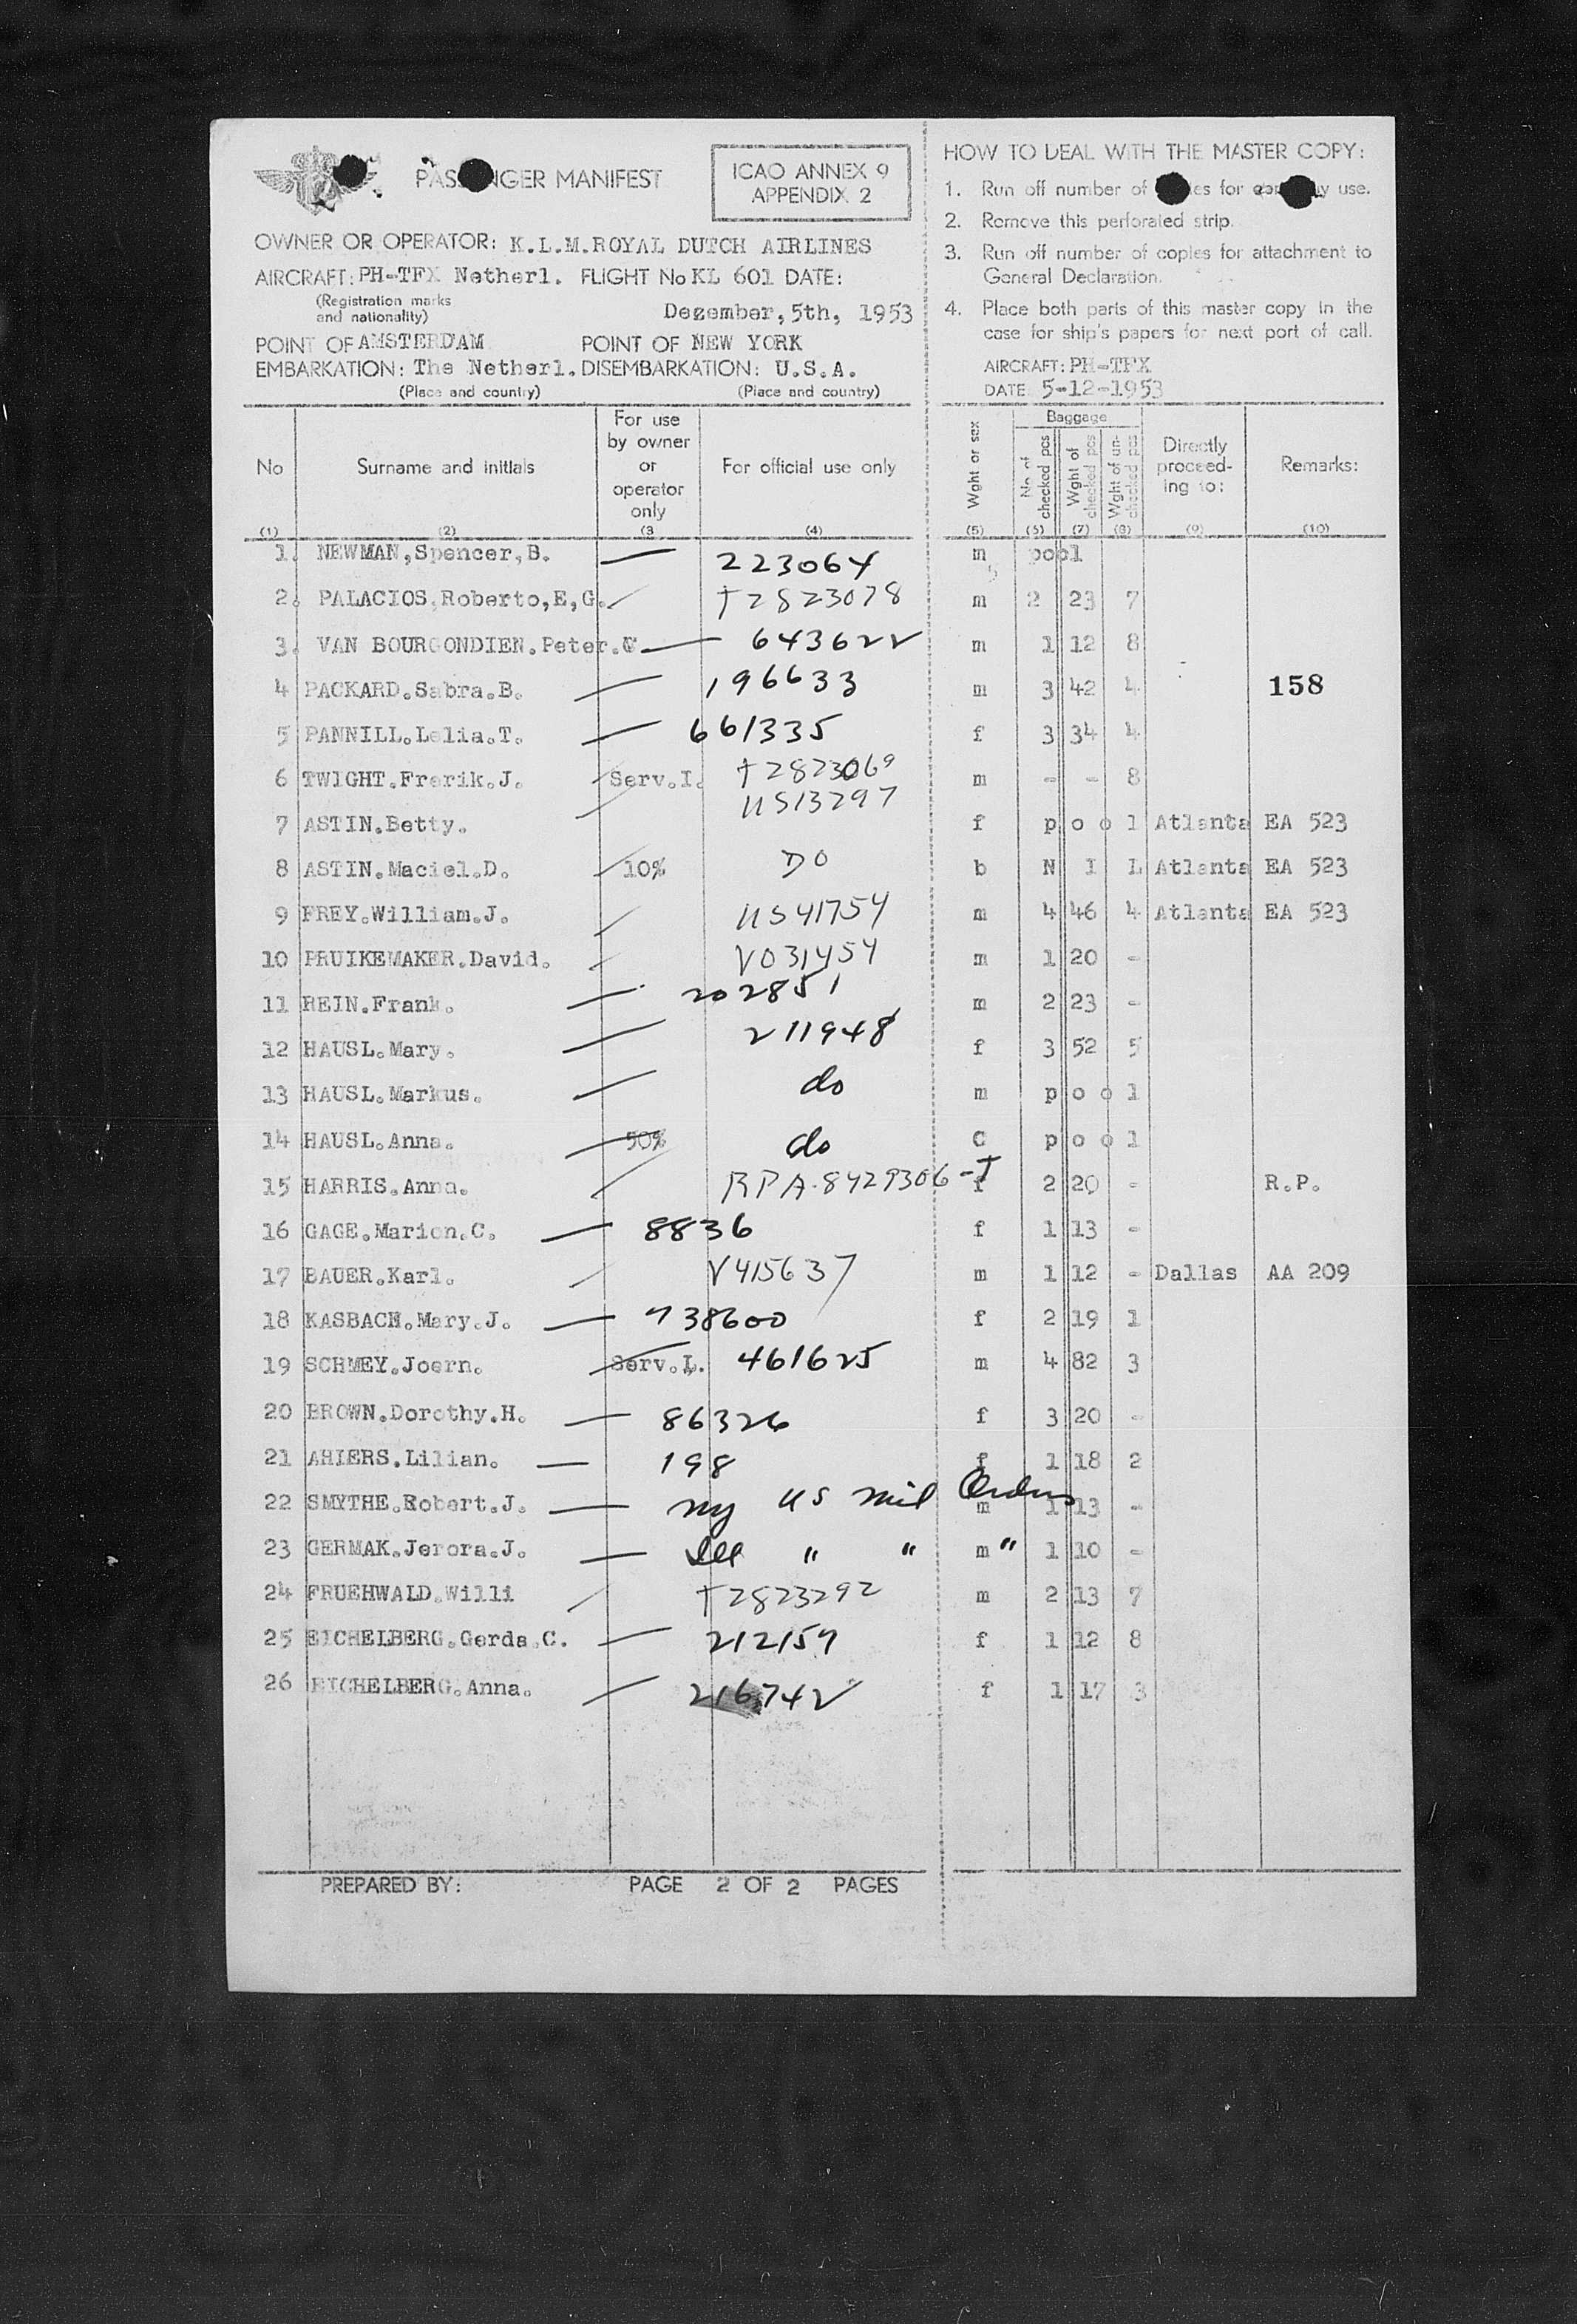 PASSENGER MANIFEST
ICAO ANNEX 9
APPENDIX 2
OWNER OR OPERATOR: K.L.M.ROYAL DUTCH AIRLINES
AIRCRAFT: PH-TFX Netherl. FLIGHT No KL 601 DATE:
(Registration marks
and nationality)
Dezember,5th, 1953
POINT OF AMSTERDAM POINT OF NEW YORK
EMBARKATION: The Netherl. DISEMBARKATION: U.S.A.
(Place and country) (Place and country)
HOW TO DEAL WITH THE MASTER COPY:
1. Run off number of copies for company use.
2. Remove this perforated strip.
3. Run off number of copies for attachment to
General Declaration.
4. Place both parts of this master copy in the
case for ship's papers for next port of call.
AIRCRAFT: PH-TFX
DATE 5-12-1953
No Surname and initials For use by owner or operator only For official use only Wght or sex Baggage No. of checked pcs Wght of checked pcs Wght of un-checked pcs Directly proceed-ing to: Remarks:
(1) (2) (3 (4) (5) (6) (7) (8) (9) (10)
1. NEWMAN,Spencer,B. — 223064 m pool
2. PALACIOS,Roberto,E,G. 2823078 m 2 23 7
3. VAN BOURGONDIEN.Peter.C — 643622 m 1 12 8
4 PACKARD.Sabra.B. — 196633 m 3 42 4 158
5 PANNILL.Lelia.T. — 661335 f 3 34 4
6 TWIGHT.Frerik.J. Serv.I. T2823069 m - - 8
7 ASTIN.Betty. US13297 f p o o l Atlanta EA 523
8 ASTIN.Maciel.D. 10% DO b N I L Atlanta EA 523
9 FREY.William.J. US41754 m 4 46 4 Atlanta EA 523
10 PRUIKEMAKER.David. V031454 m 1 20 -
11 REIN.Frank. — 202851 m 2 23 -
12 HAUSL.Mary. — 211948 f 3 52 5
13 HAUSL.Markus. — do m p o o l
14 HAUSL.Anna. 50% do C p o o l
15 HARRIS.Anna. RPA-8429306-J f 2 20 - R.P.
16 GAGE.Marion.C. — 8836 f 1 13 -
17 BAUER.Karl. V415637 m 1 12 - Dallas AA 209
18 KASBACH.Mary.J. — 738600 f 2 19 1
19 SCHMEY.Joern. Serv.I. 461625 m 4 82 3
20 BROWN.Dorothy.H. — 86326 f 3 20 -
21 AHIERS.Lilian. — 198 f 1 18 2
22 SMYTHE.Robert.J. — US mil Orders m 1 13 -
23 GERMAK.Jerora.J. — " " m " 1 10 -
24 FRUEHWALD.Willi T2823292 m 2 13 7
25 EICHELBERG.Gerda.C. — 212157 f 1 12 8
26 EICHELBERG.Anna. — 216742 f 1 17 3
PREPARED BY: PAGE 2 OF 2 PAGES